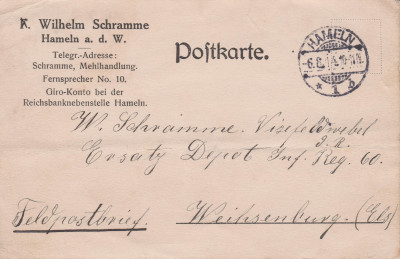 K. Wilhelm Schramme
Hameln a. d. W.
Telegr.-Adresse:
Schramme, Mehlhandlung.
Fernsprecher No. 10.
Giro-Konto bei der
Reichsbanknebenstelle Hameln.
Postkarte.
HAMELN
* 1 b
W. Schramme. Vizefeldwebel
d. R.
Ersatz Depot Inf. Reg. 60.
Feldpostbrief. Weihsenburg (Els)